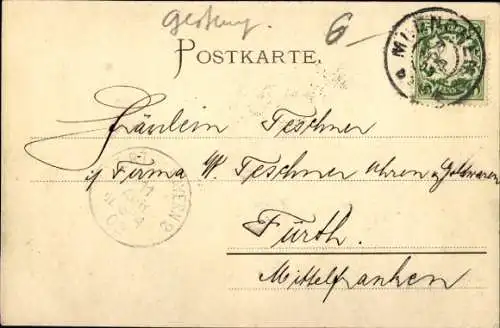 6-
POSTKARTE.
MÜNCHEN
Fräulein Teschner
i/ Firma W. Teschner Uhren & Goldwaren
Fürth.
Mittelfranken